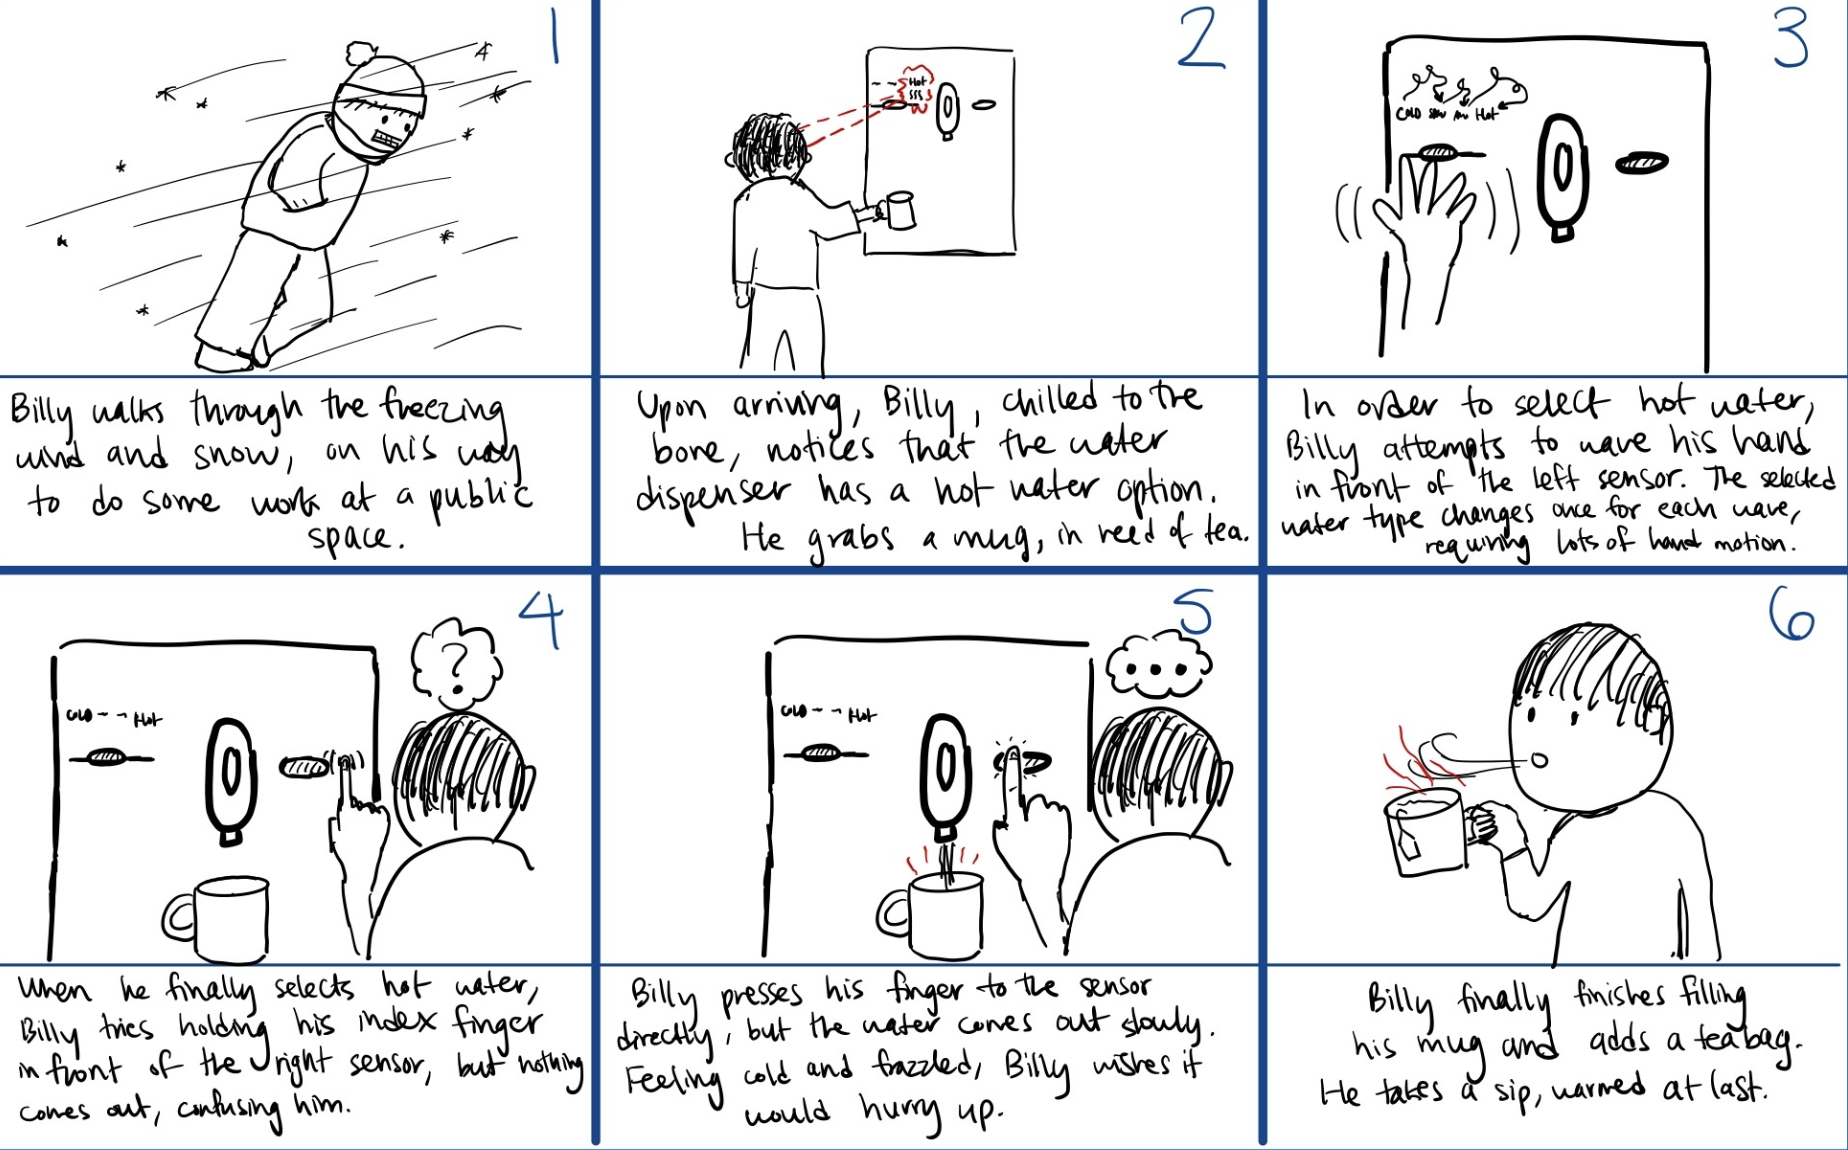 1
Billy walks through the freezing
wind and snow, on his way
to do some work at a public
space.
2
Hot
Upon arriving, Billy, chilled to the
bone, notices that the water
dispenser has a hot water option.
He grabs a mug, in need of tea.
3
COLD Hot
In order to select hot water,
Billy attempts to wave his hand
in front of the left sensor. The selected
water type changes once for each wave,
requiring lots of hand motion.
4
?
COLD -- Hot
When he finally selects hot water,
Billy tries holding his index finger
in front of the right sensor, but nothing
comes out, confusing him.
5
...
COLD -- Hot
Billy presses his finger to the sensor
directly, but the water comes out slowly.
Feeling cold and frazzled, Billy wishes it
would hurry up.
6
Billy finally finishes filling
his mug and adds a teabag.
He takes a sip, warmed at last.